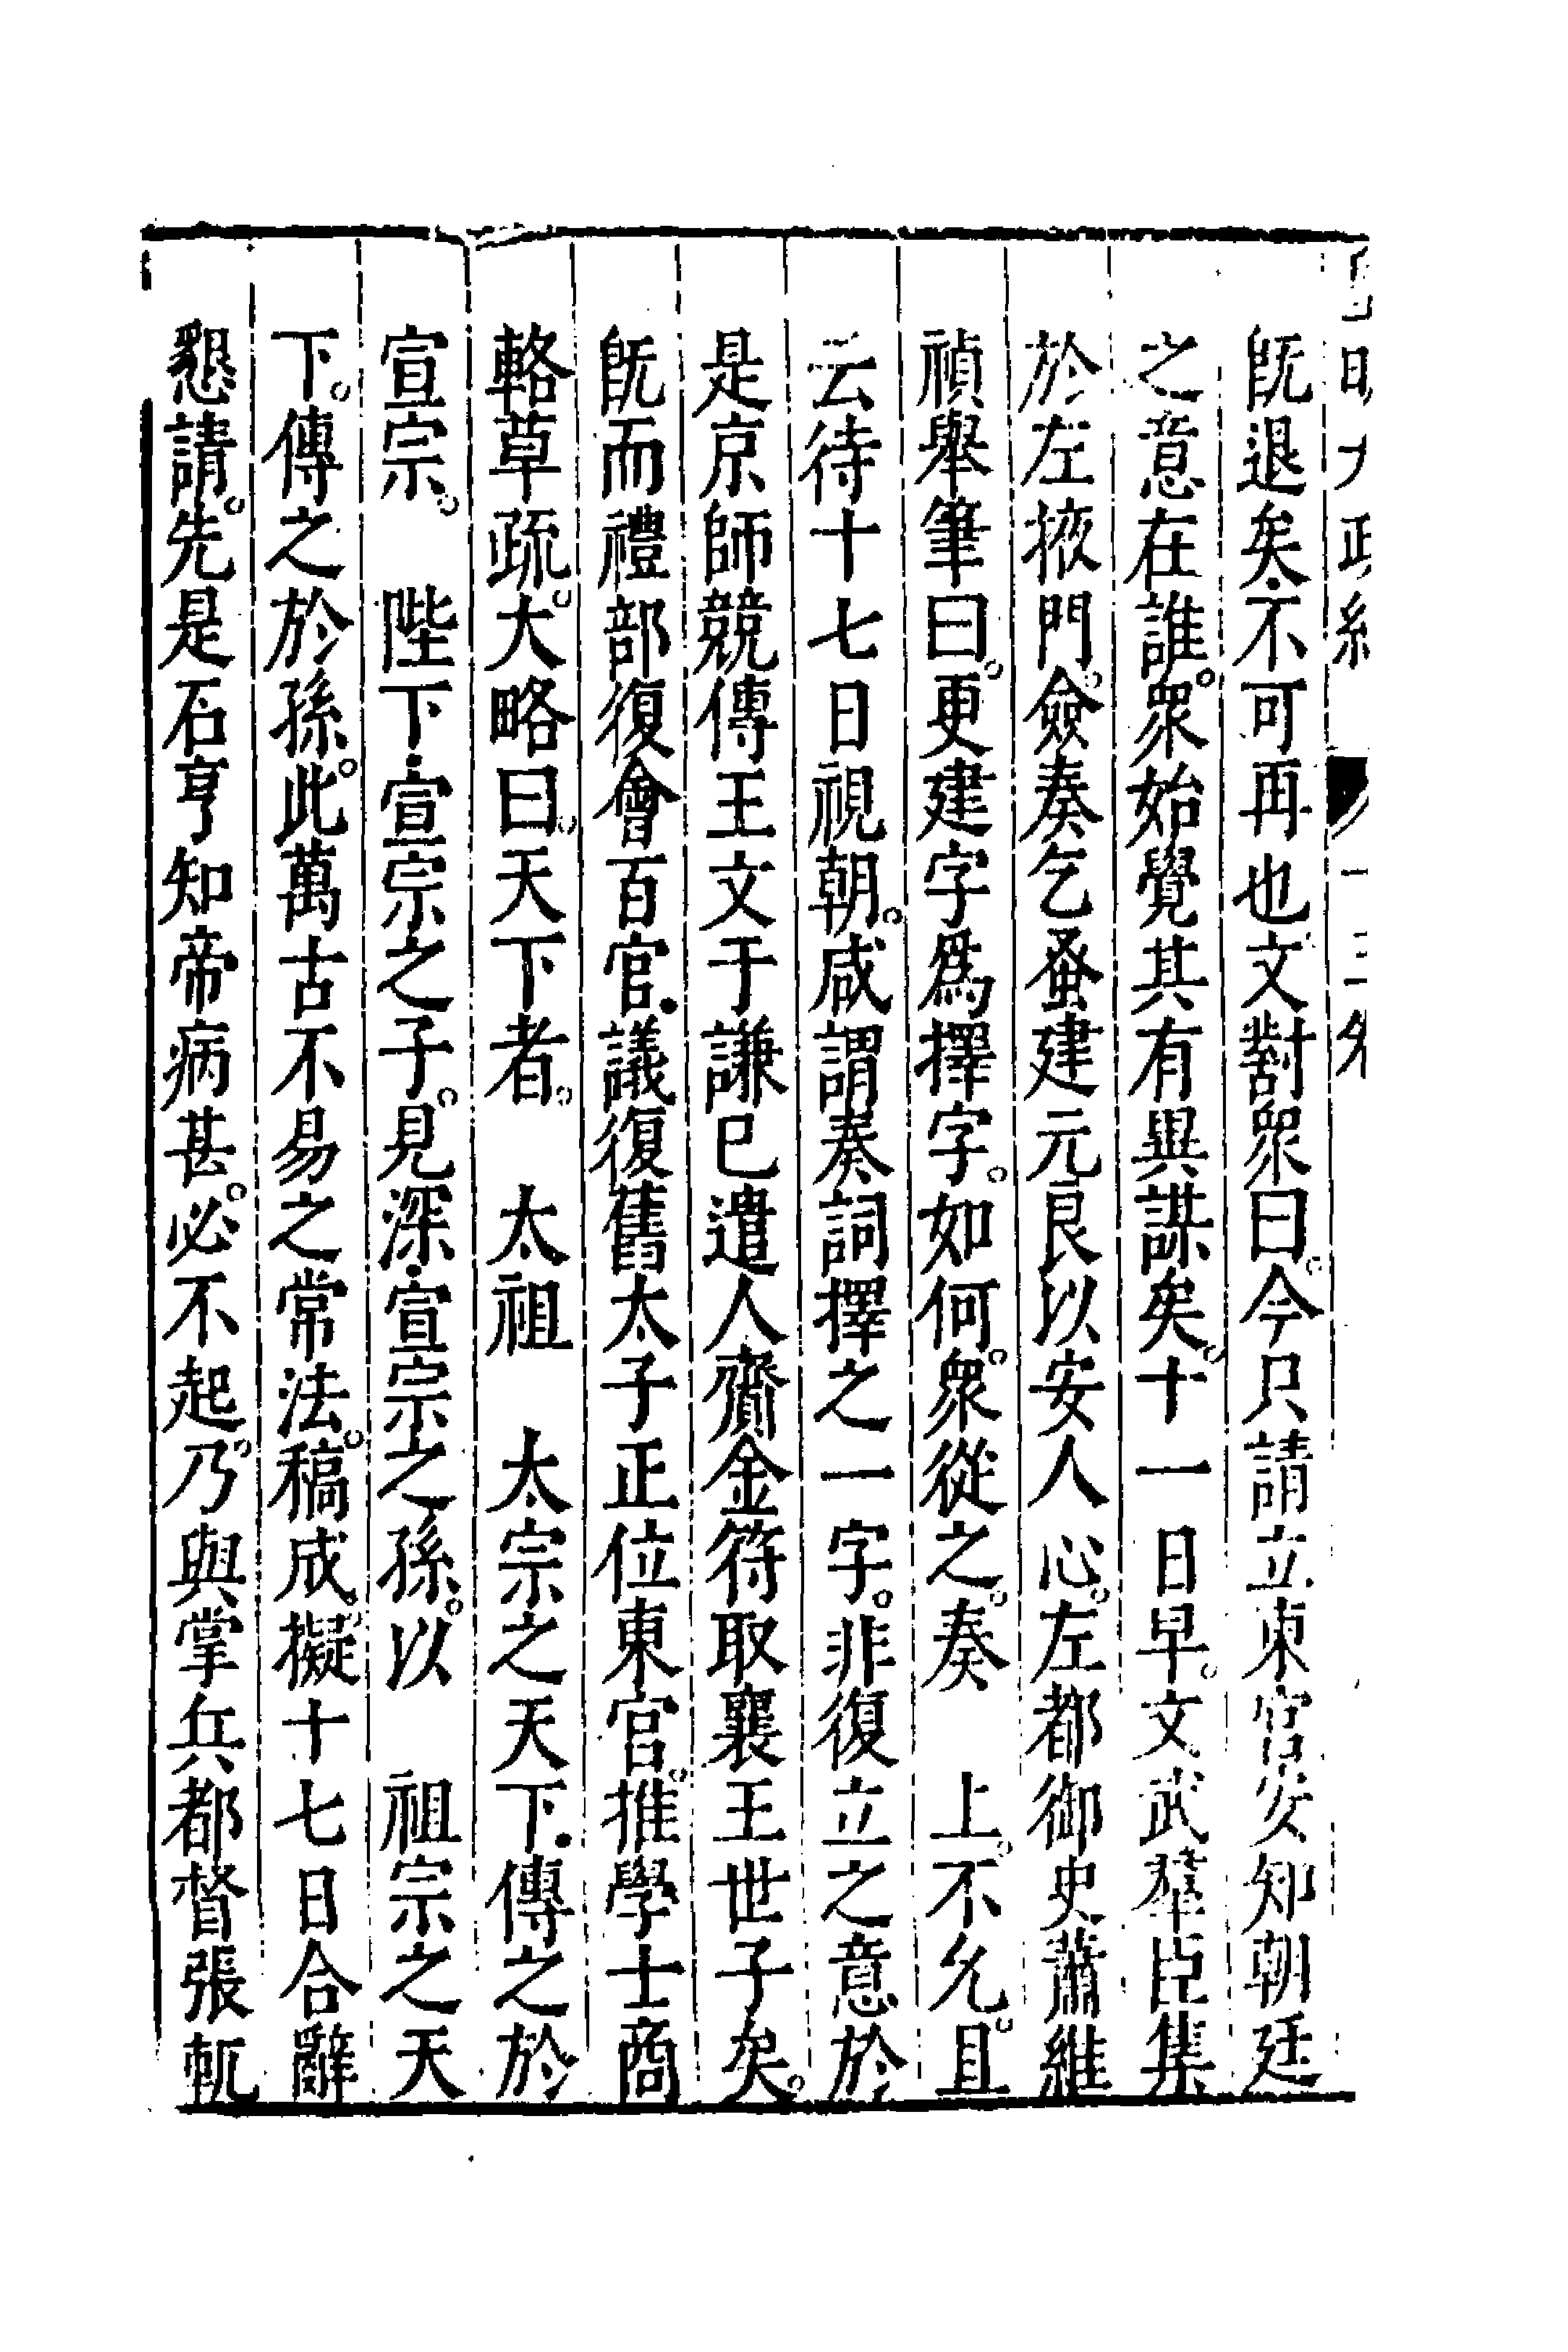 旣退矣不可再也文對衆曰今只請立東宮安知朝廷
之意在誰衆始覺其有異謀矣十一日早文武羣臣集
於左掖門僉奏乞蚤建元良以安人心左都御史蕭維
禎舉筆曰更建字爲擇字如何衆從之奏　上不允且
云待十七日視朝咸謂奏詞擇之一字非復立之意於
是京師競傳王文于謙已遣人齎金符取襄王世子矣
旣而禮部復會百官議復舊太子正位東宮推學士商
輅草疏大略曰天下者　太祖　太宗之天下傳之於
宣宗　陛下宣宗之子見深宣宗之孫以　祖宗之天
下傳之於孫此萬古不易之常法稿成擬十七日合辭
懇請先是石亨知帝病甚必不起乃與掌兵都督張軏